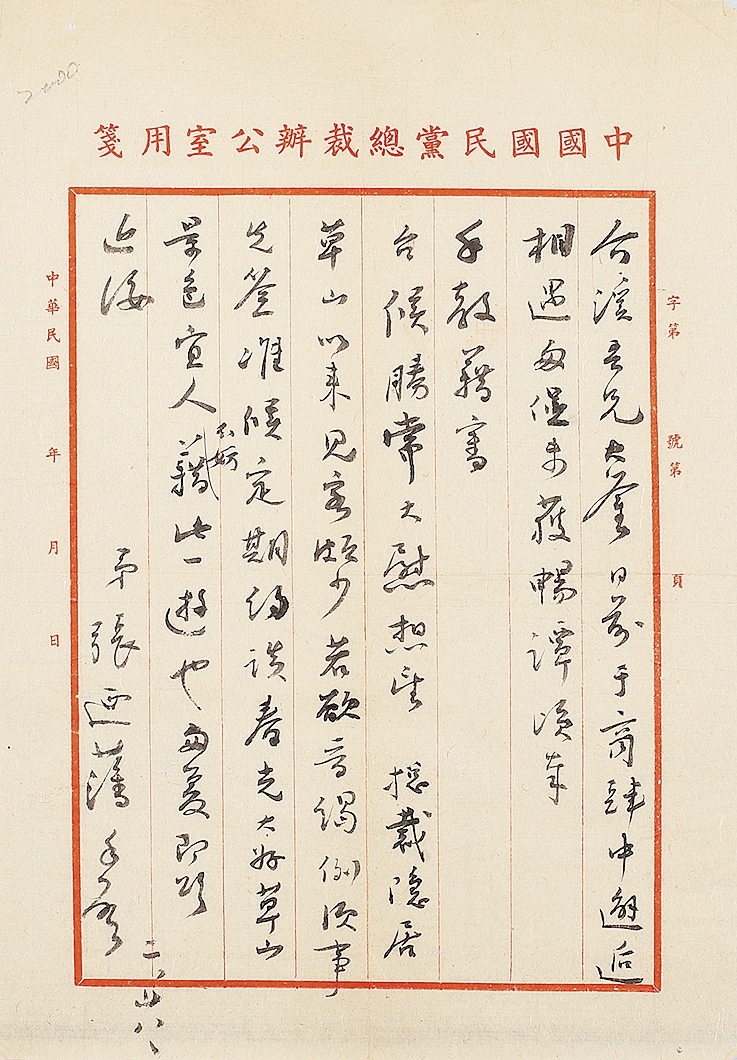 中國國民黨總裁辦公室用箋
字第　號第　頁
台溪吾兄大鑒日前于商肆中邂逅
相遇匆促未獲暢譚頃奉
手教藉審
台候勝常大慰想望　總裁隱居
草山以來見客極少若欲晉謁例須事
先簽准候定期約談春光大好草山
景色宜人不妨藉此一遊也匆復即頌
近綏
弟張廼藩手啟
二、廿八、
中華民國　年　月　日